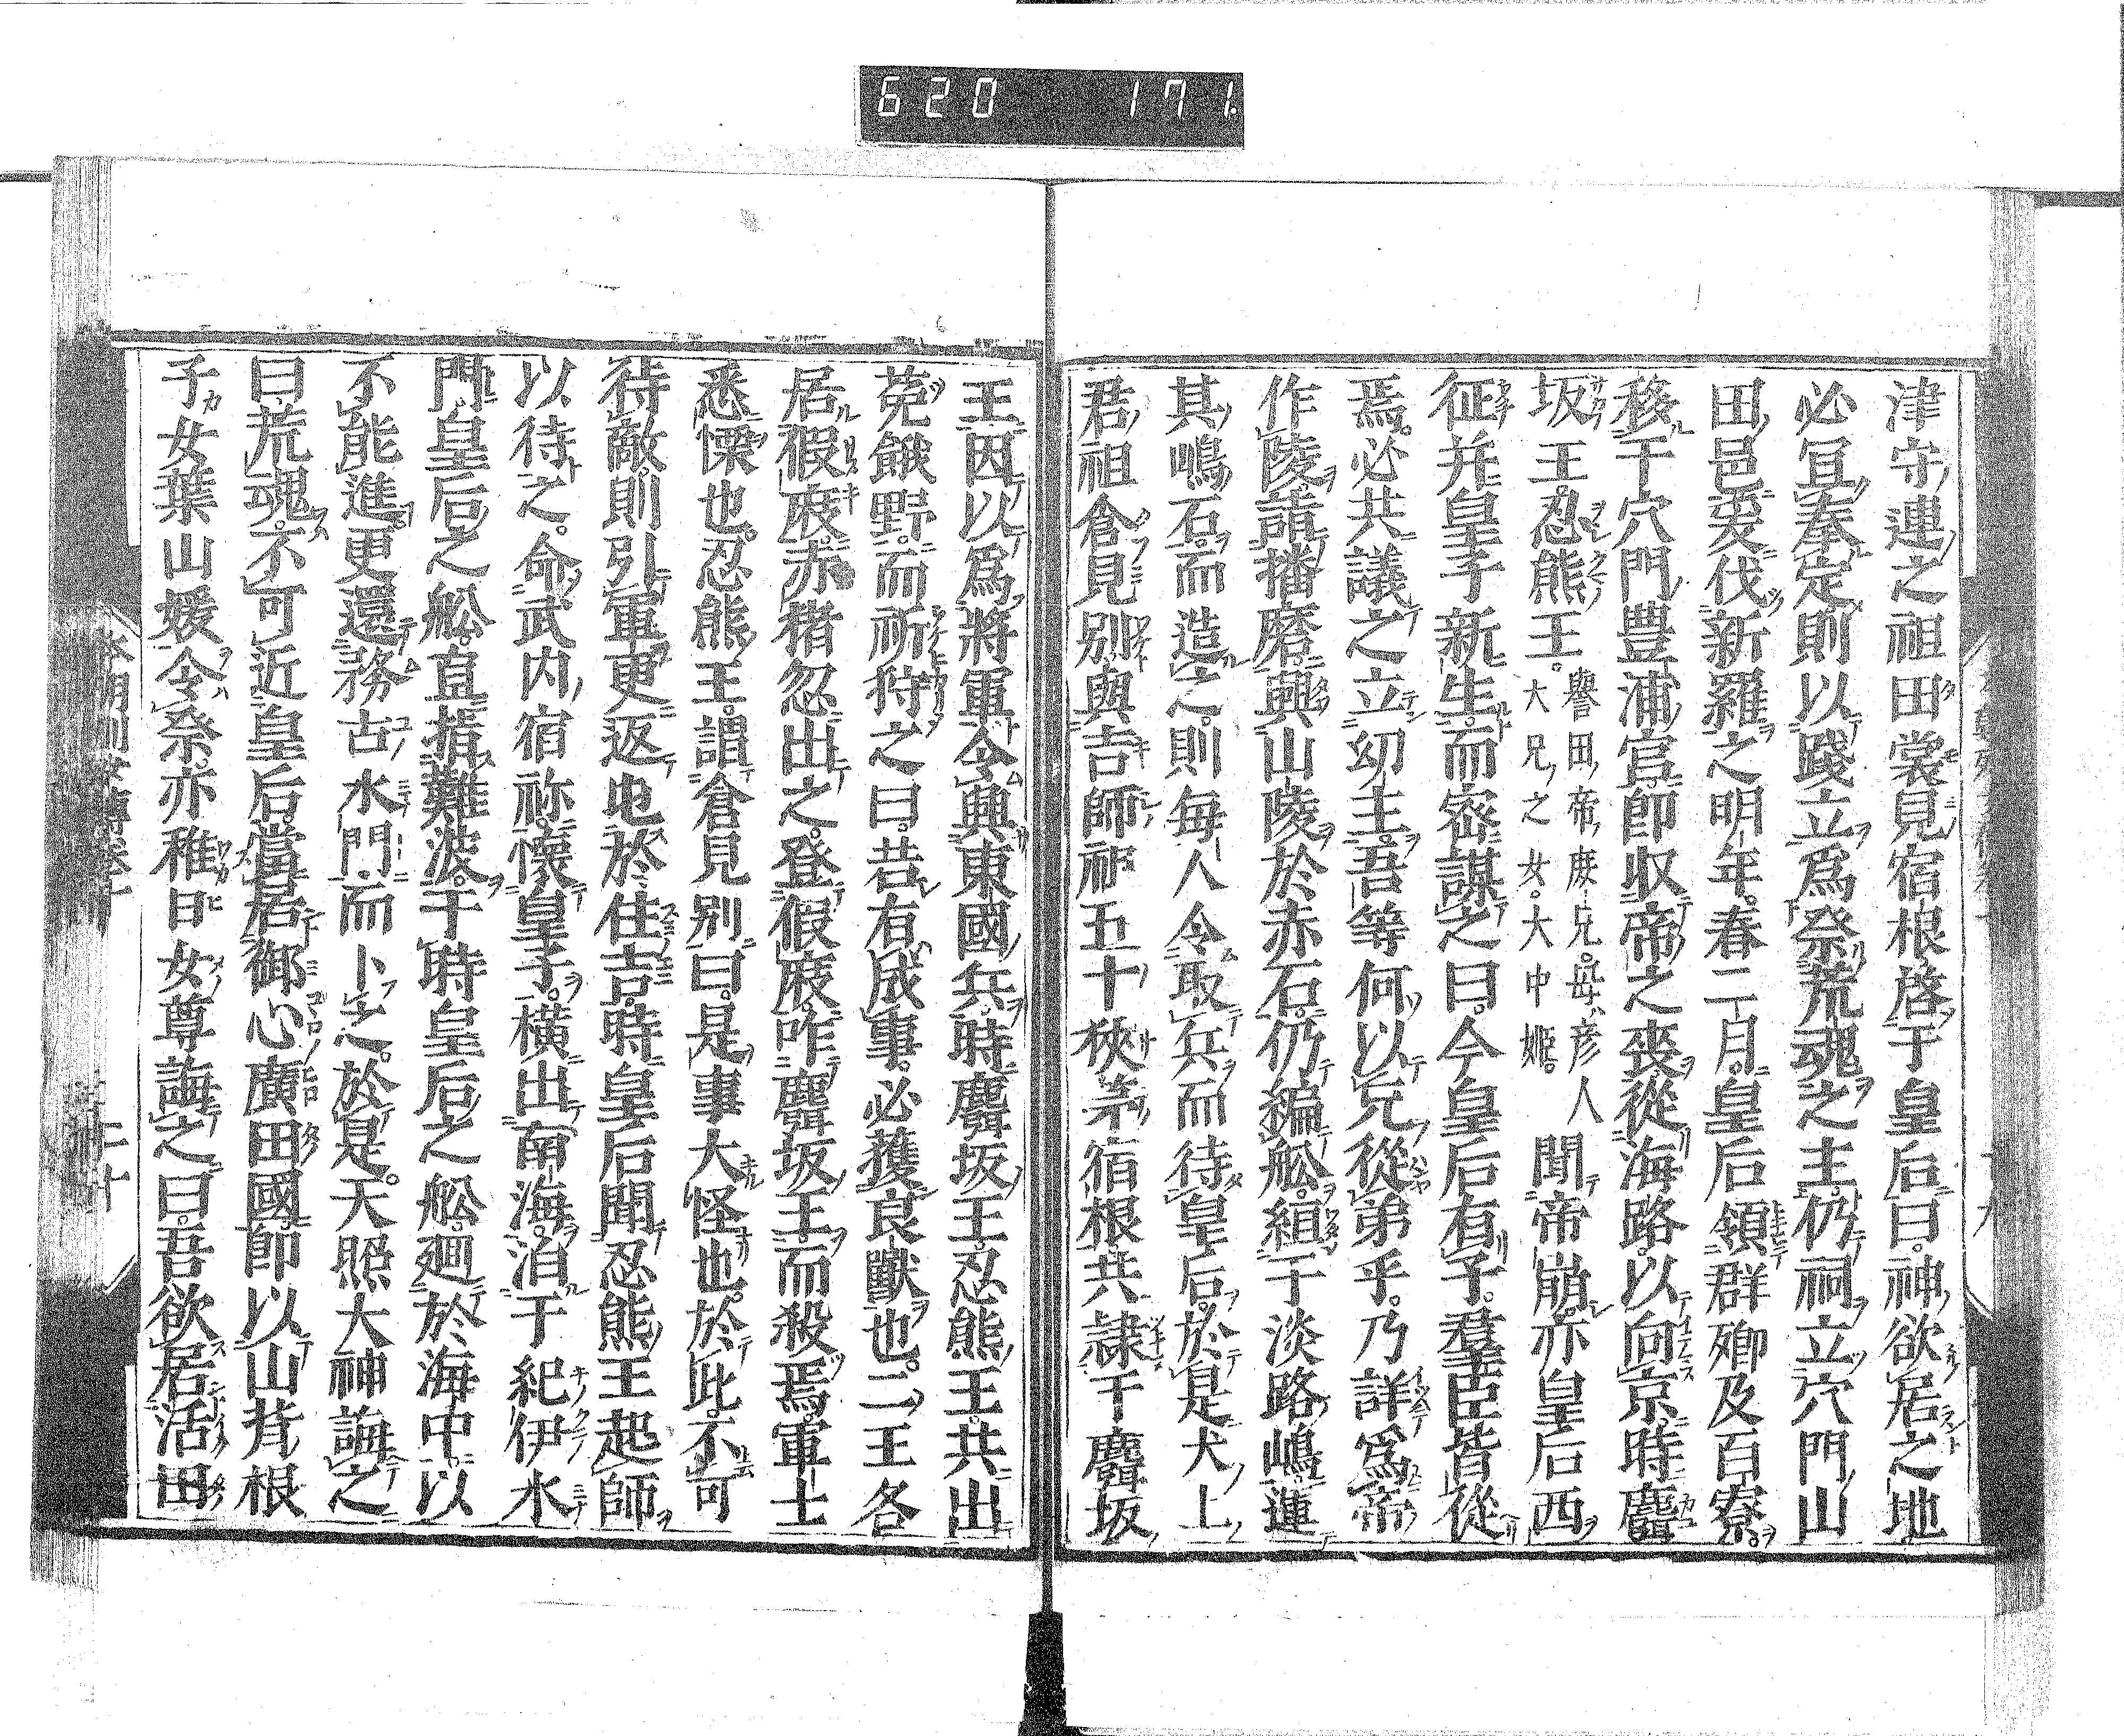 620 171
津守連之祖田裳見宿根啓于皇后曰。神欲居之地。
必宜奉定則以踐立爲祭荒魂之主。仍祠立穴門山
田邑爰伐新羅之明年。春二月。皇后領群卿及百寮。
移于穴門豊浦宮。即収帝之喪。從海路。以向京。時麛
坂王。忍熊王。譽田帝庶兄。母彦人大兄之女。大中姫。聞帝崩。亦皇后西
征并皇子新生。而密謀之曰。今皇后有子。羣臣皆從
焉。必共議之立幼主。吾等何以兄從弟乎。乃詳爲帝
作陵。詣播磨。興山陵於赤石。仍編舩。絙于淡路嶋。運
其嶋石。而造之。則毎人令取兵而待皇后。於是犬上
君祖倉見別與吉師祖五十狹茅宿根共隷于麛坂
王因以爲將軍令興東國兵。時麛坂王忍熊王。共出
菟餓野。而祈狩之曰。若有成事。必獲良獸也。二王各
居假庪。赤猪忽出之。登假庪。咋麛坂王而殺焉。軍士
悉慄也。忍熊王。謂倉見別曰。是事大怪也。於此。不可
待敵。則引軍更返屯於住吉。時皇后聞忍熊王起師
以待之。命武内宿祢。懷皇子。横出南海。泊于紀伊水
門。皇后之舩。直指難波。于時皇后之舩。廻於海中以
不能進更還務古水門。而卜之。於是。天照大神誨之
曰。荒魂。不可近皇后。當居御心廣田國。即以山背根
子女葉山媛令祭。亦稚日女尊誨之曰。吾欲居活田
二十